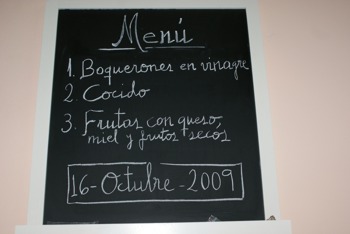 Menú
1. Boquerones en vinagre
2. Cocido
3. Frutas con queso,
miel y frutos secos
16-Octubre-2009